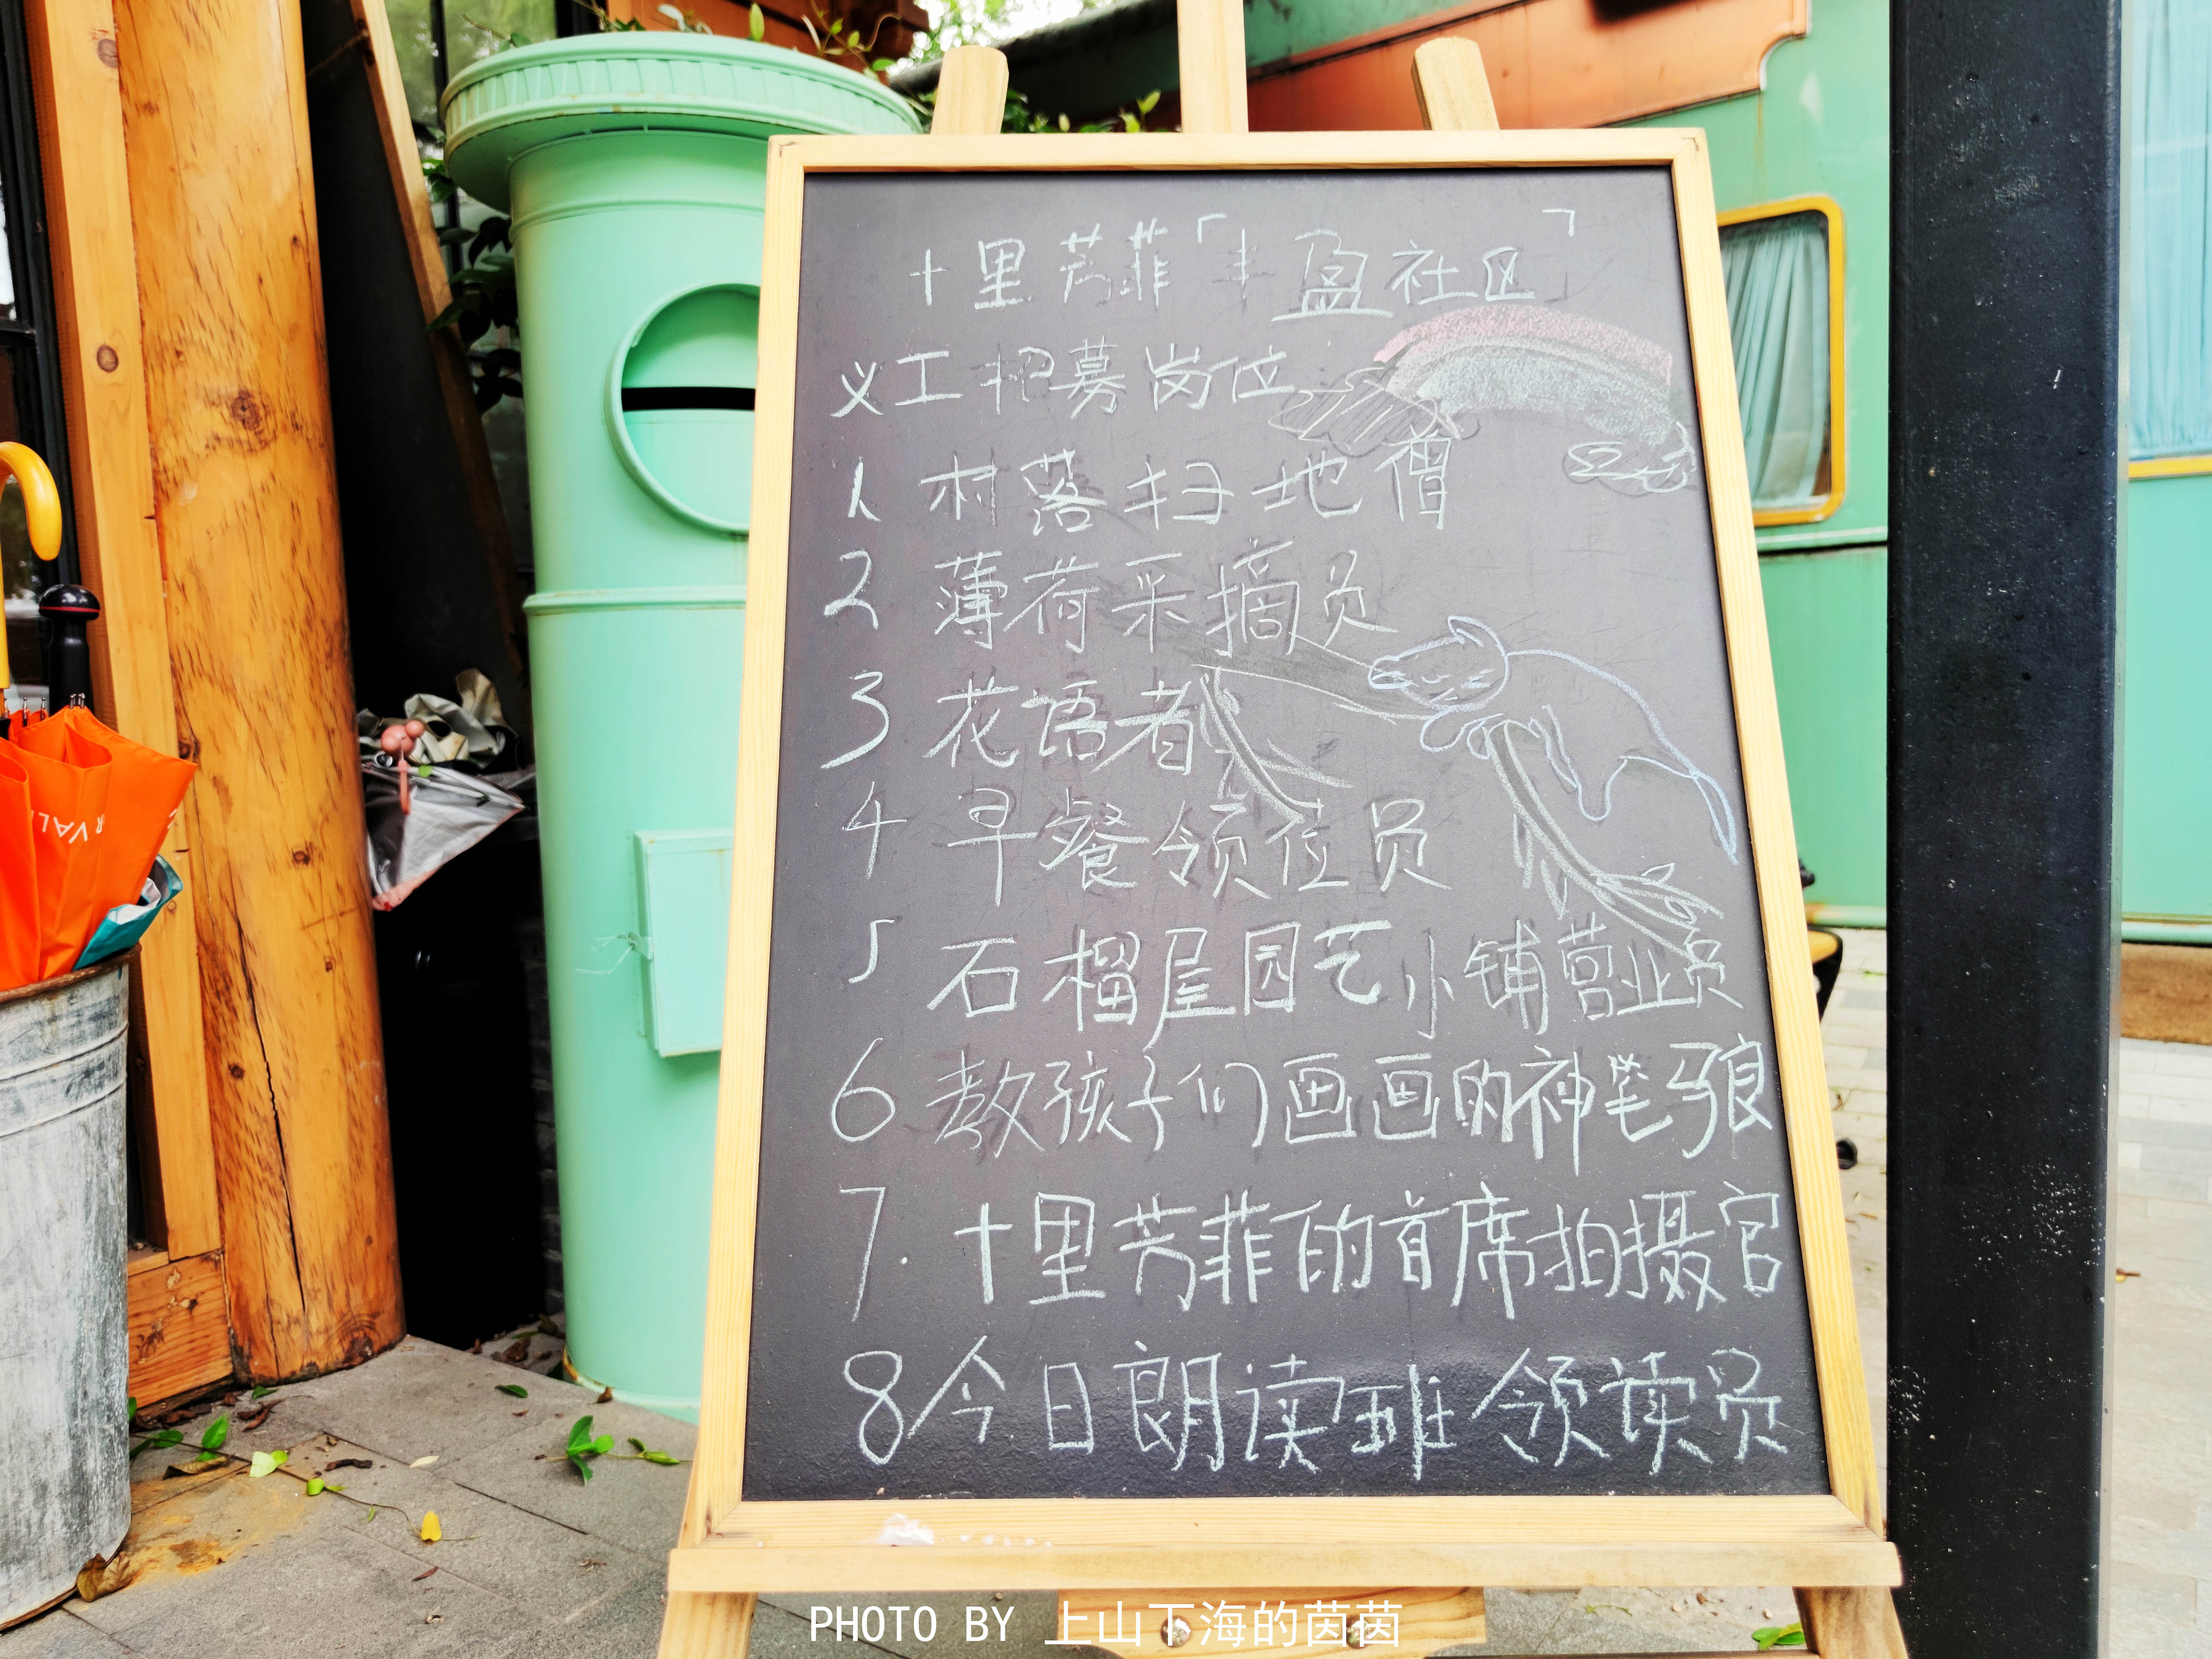 十里芳菲「丰盈社区」
义工招募岗位
1. 村落扫地僧
2 薄荷采摘员
3 花语者
4 早餐领位员
5 石榴屋园艺小铺营业员
6. 教孩子们画画的神笔马良
7. 十里芳菲的首席拍摄官
8 今日朗读班领读员
PHOTO BY 上山下海的茵茵